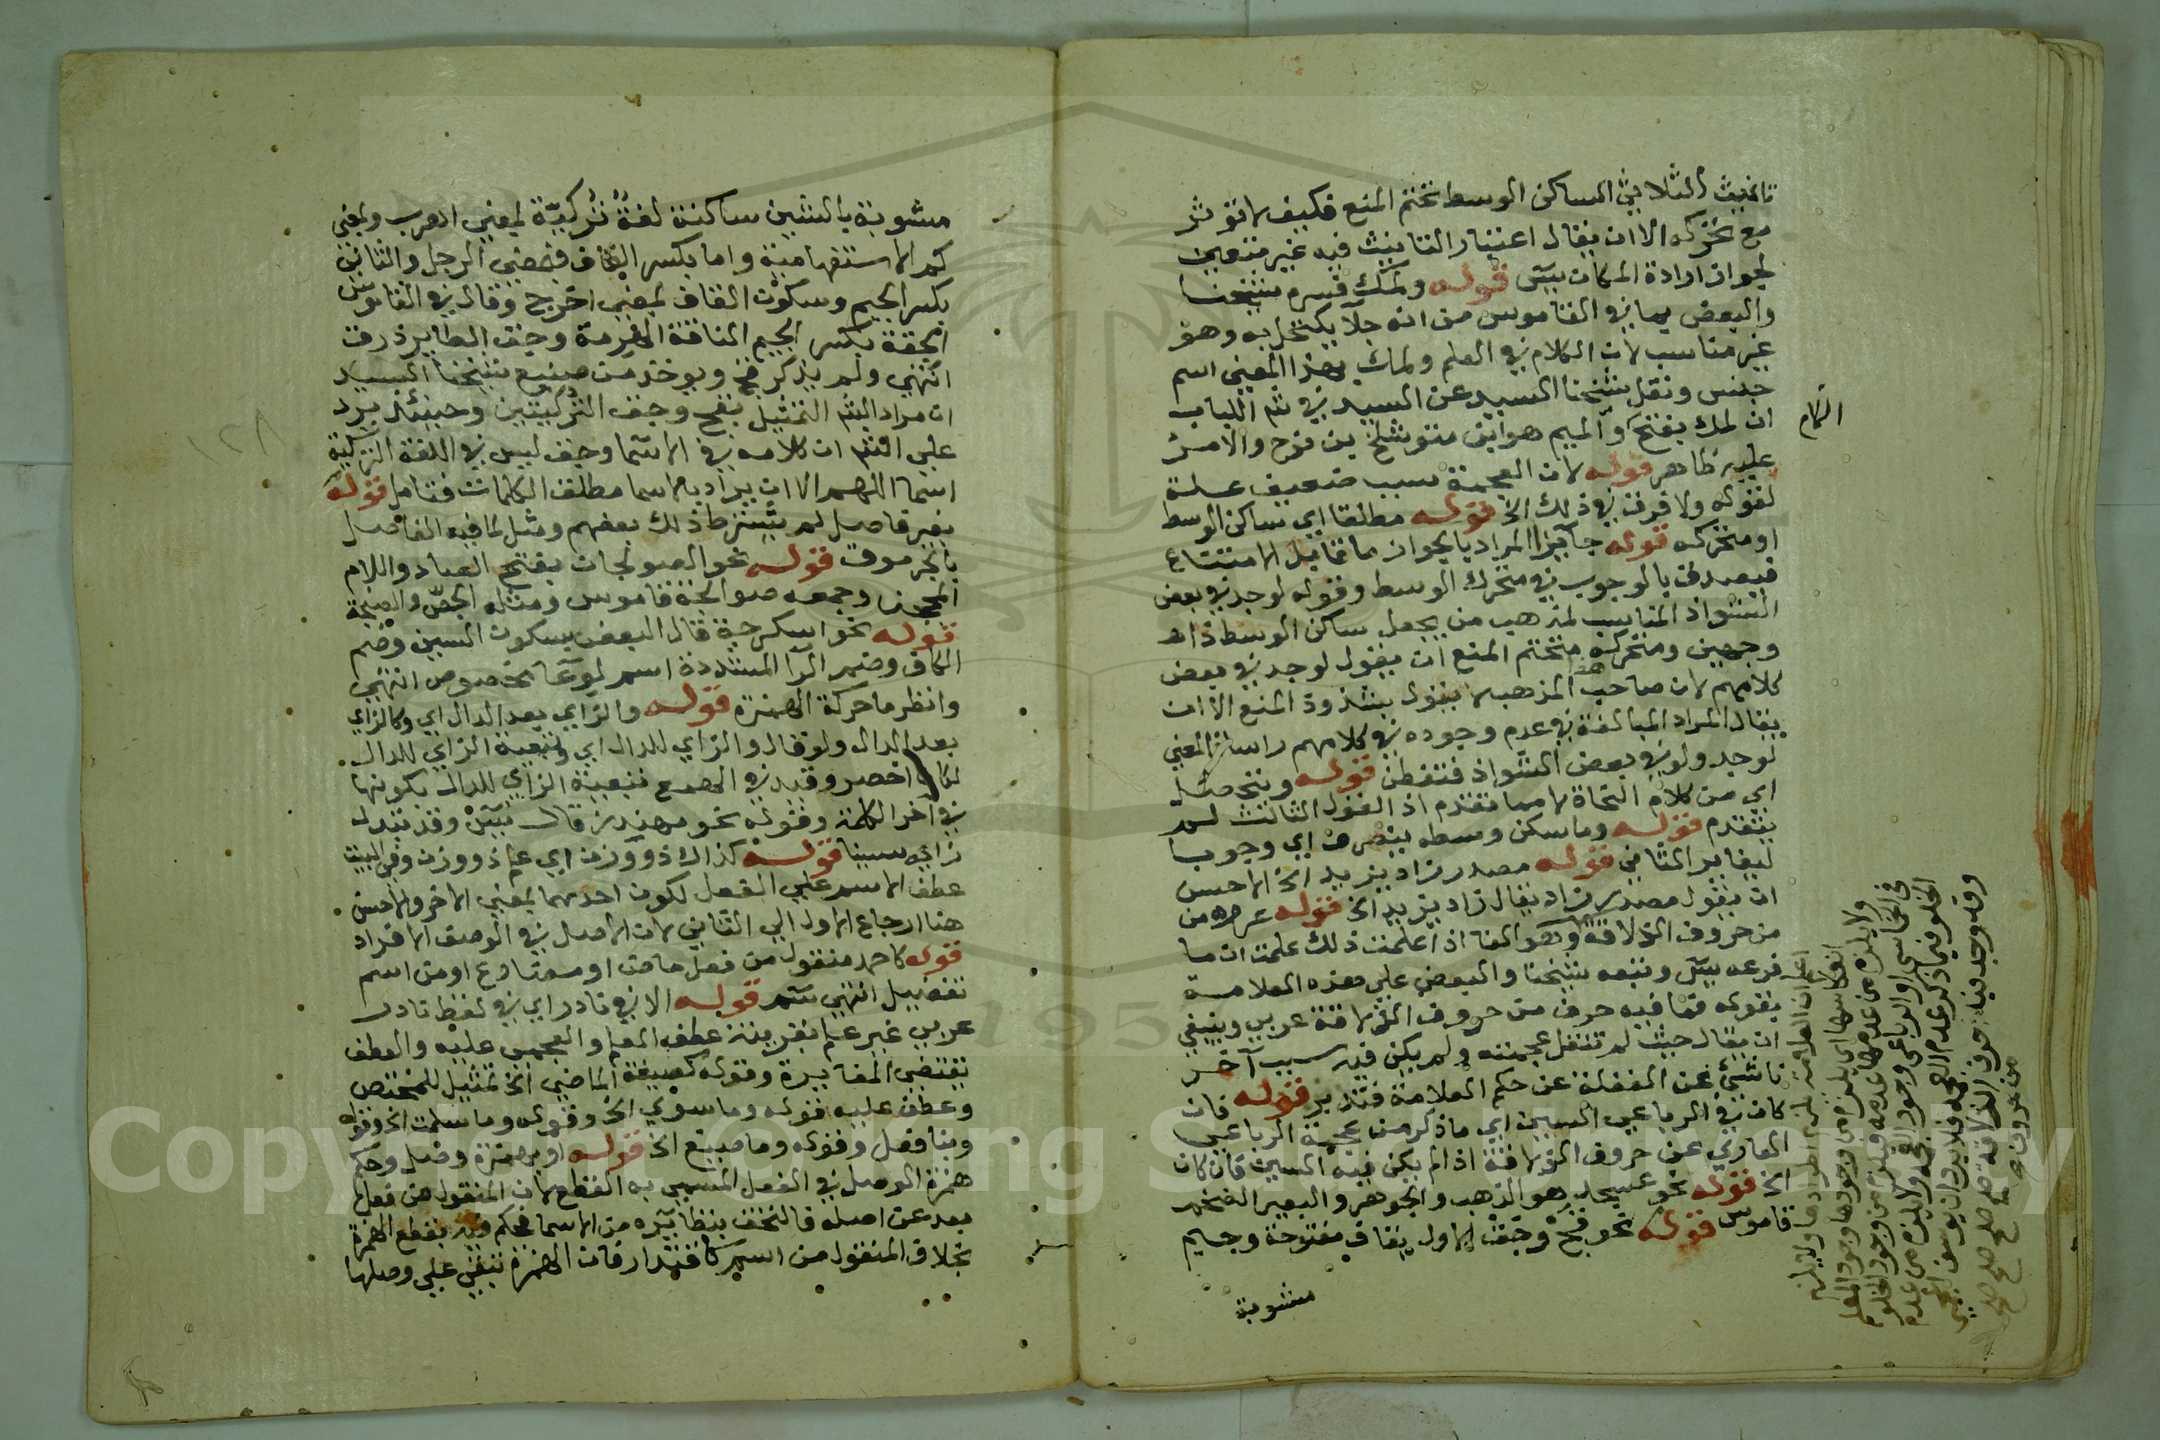 تانيث الثلاثي الساكن الوسط تحتم المنع فكيف لا تؤثر
مع تحركه الا ان يقال اعتبار التانيث فيه غير متعين
لجواز ارادة المكان بيس قوله ولمك فسره شيخنا
والبعض بما في القاموس من انه جلا يكتحل به وهو
غير مناسب لان الكلام في العلم ولمك بهذا المعني اسم
جنس ونقل شيخنا السيد عن السيد في شر اللباب
ان لمك بفتح اللام
والميم هو ابن متوشلخ بن نوح والامر
عليه ظاهر قوله لان العجمة سبب ضعيف علة
لقوله ولا فرق في ذلك الخ قوله مطلقا اي ساكن الوسط
او متحركه قوله جايزا المراد بالجواز ما قابل الامتناع
فيصدق بالوجوب في متحرك الوسط وقوله لوجد في بعض
الشواذ المناسب لمذهب من يجعل ساكن الوسط ذا
وجهين ومتحركه متحتم المنع ان يقول لوجد في بعض
كلامهم لان صاحب هذا المذهب لا يقول بشذوذ المنع الا ان
يقال المراد المبالغة في عدم وجوده في كلامهم راسا والمعني
لوجد ولو في بعض الشواذ فتفطن قوله ويتحصل
اي من كلام النحاة لا مما تقدم اذ القول الثالث لم
يتقدم قوله وما سكن وسطه ينصرف اي وجوبا
ليغاير الثاني قوله مصدر زاد يزيد الخ الاحسن
ان يقول مصدر زاد يقال زاد يزيد الخ قوله عروه من
من حروف الذلاقة وهو المفا اذا علمت ذلك علمت ان ما
فرعه بيس وتبعه شيخنا والبعض علي هذه العلامة
بقوله فما فيه حرف من حروف الذلاقة عربي وينبغي
ان يقال حيث لم تنقل عجمته ولم يكن فيه سبب آخر
ناشئ عن الغفلة عن حكم العلامة فتدبر قوله فان
كان في الرباعي السين اي ما ذكر من عجمة الرباعي
العاري عن حروف الذلاقة اذا لم يكن فيه السين فان كان
الخ قوله نحو عسجد هو الذهب والجوهر والبعير الضخم
قاموس قوله نحو قج وجق الاول بقاف مفتوحة وجيم
مشوبة
مشوبة بالشين ساكنة لغة تركية لمعني اهرب ولمعني
كم الاستفهامية واما بكسر القاف فمعني الرجل والثاني
بكسر الجيم وسكون القاف لمعني اخرج وقال في القاموس
الجقة بكسر الجيم الناقة الهرمة وجق الطاير ذرق
انتهي ولم يذكر قج ويوخذ من صنيع شيخنا السيد
ان مراد الش التمثيل بقج وجق التركيتين وحينئذ يرد
علي الش ان كلامه في الاسما وجق ليس في اللغة التركية
اسما اللهم الا ان يراد بالاسما مطلق الكلمات فتامل قوله
بغير فاصل لم يشترط ذلك بعضهم ومثل لما فيه الفاصل
بالجرموق قوله نحو الصولجان بفتح الصاد واللام
المحجن وجمعه صوالجة قاموس ومثله الجص والصنجة
قوله نحو اسكرجة قال البعض بسكون السين وضم
الكاف وضم الرا المشددة اسم لوعا مخصوص انتهي
وانظر ما حركة الهمزة قوله والزاي بعد الدال اي وكالزاي
بعد الدال ولو قال والزاي للدال اي وتبعية الزاي للدال
لكان اخصر وقيد في الهمع تبعية الزاي للدال بكونها
في اخر الكلمة وقوله نحو مهندز قال بيس وقد تبدل
زايه سينا قوله كذاك ذو وزن اي علم ذو وزن وفي البيت
عطف الاسم علي الفعل لكون احدهما لمعني الاخر والاحسن
هنا ارجاع الاول الي الثاني لان الاصل في الوصف الافراد
قوله كاحمد منقول من فعل ماض او مضارع او من اسم
تفضيل انتهي سم قوله الا في نادر اي في لفظ نادر
عربي غير علم بقرينة عطف العلم والعجمي عليه والعطف
يقتضي المغايرة وقوله كصيغة الماضي الخ تمثيل للمختص
وعطف عليه قوله وما سوي الخ وقوله وما سلمت الخ وقوله
وبنا فعل وقوله وما صيغ الخ قوله او بهمزة وصل وحكم
همزة الوصل في الفعل المسمي به القطع لان المنقول من فعل
بعد عن اصله فالتحق بنظايره من الاسما فحكم فيه بقطع الهمزة
بخلاف المنقول من اسم كاقتدار فان الهمزة تبقي علي وصلها